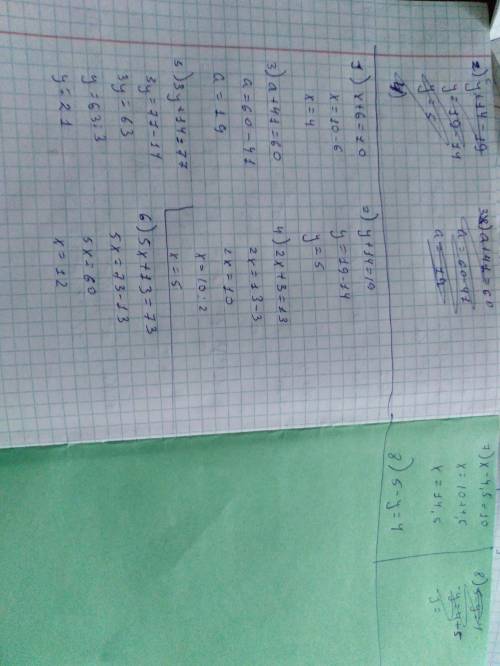 1) x+6=10
x=10-6
x=4
2) y+14=19
y=19-14
y=5
3) a+41=60
a=60-41
a=19
4) 2x+3=13
2x=13-3
2x=10
x=10:2
x=5
5) 3y+14=77
3y=77-14
3y=63
y=63:3
y=21
6) 5x+13=73
5x=73-13
5x=60
x=12
7) x-4,5=10
x=10+4,5
x=14,5
8) 5-y=4